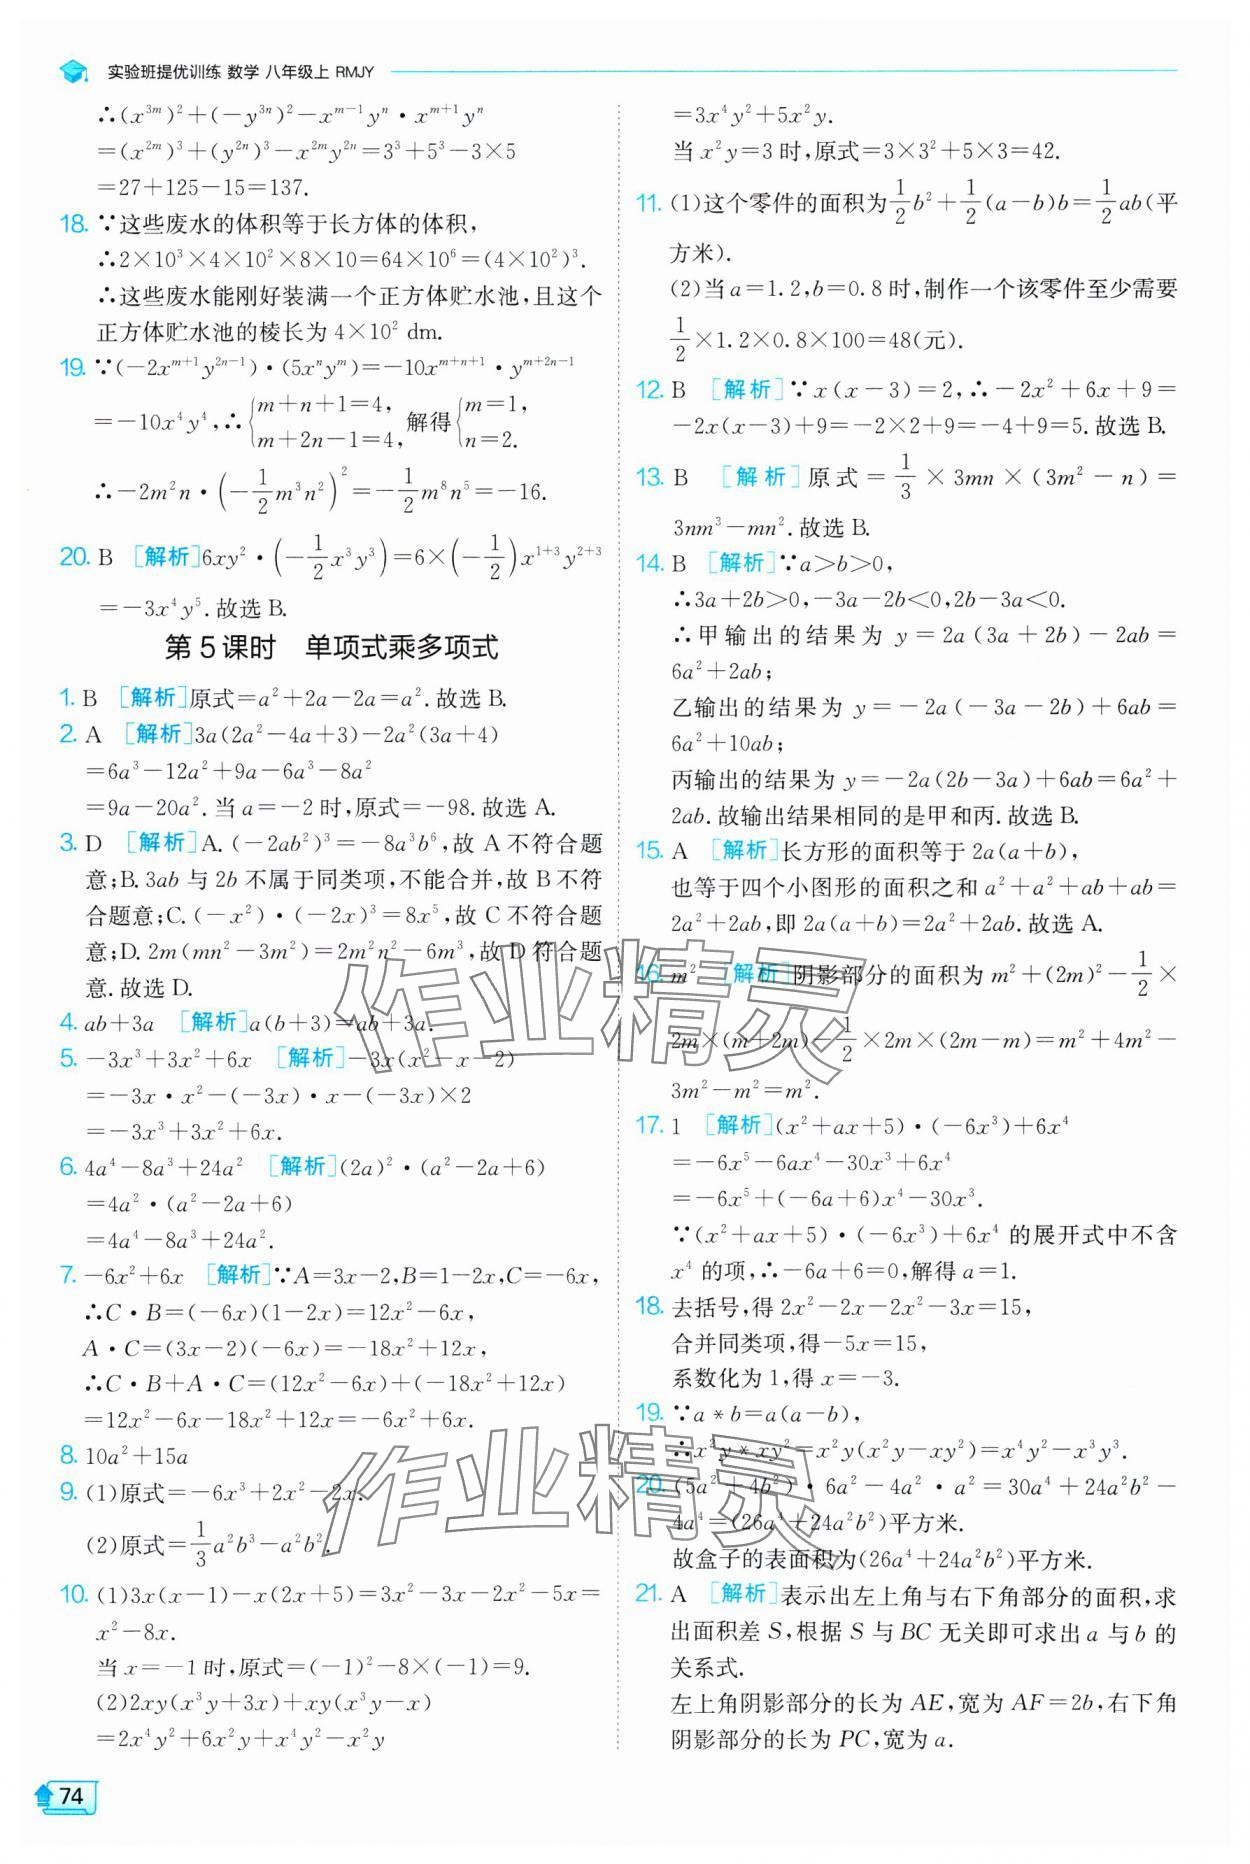 实验班提优训练 数学 八年级上 RMJY
∴(x³ᵐ)²+(-y³ⁿ)²-xᵐ⁻¹yⁿ·xᵐ⁺¹yⁿ
=(x²ᵐ)³+(y²ⁿ)³-x²ᵐy²ⁿ=3³+5³-3×5
=27+125-15=137.
18. ∵这些废水的体积等于长方体的体积,
∴2×10³×4×10²×8×10=64×10⁶=(4×10²)³.
∴这些废水能刚好装满一个正方体贮水池,且这个
正方体贮水池的棱长为 4×10² dm.
19. ∵(-2xᵐ⁺¹y²ⁿ⁻¹)·(5xⁿyᵐ)=-10xᵐ⁺ⁿ⁺¹·yᵐ⁺²ⁿ⁻¹
=-10x⁴y⁴,∴{m+n+1=4, m+2n-1=4, 解得{m=1, n=2.
∴-2m²n·(-1/2m³n²)²=-1/2m⁸n⁵=-16.
20. B [解析]6xy²·(-1/2x³y³)=6×(-1/2)x¹⁺³y²⁺³
=-3x⁴y⁵.故选 B.
第 5 课时 单项式乘多项式
1. B [解析]原式=a²+2a-2a=a².故选 B.
2. A [解析]3a(2a²-4a+3)-2a²(3a+4)
=6a³-12a²+9a-6a³-8a²
=9a-20a².当 a=-2 时,原式=-98.故选 A.
3. D [解析]A.(-2ab²)³=-8a³b⁶,故 A 不符合题
意;B.3ab 与 2b 不属于同类项,不能合并,故 B 不符
合题意;C.(-x²)·(-2x)³=8x⁵,故 C 不符合题
意;D.2m(mn²-3m²)=2m²n²-6m³,故 D 符合题
意.故选 D.
4. ab+3a [解析]a(b+3)=ab+3a.
5. -3x³+3x²+6x [解析]-3x(x²-x-2)
=-3x·x²-(-3x)·x-(-3x)×2
=-3x³+3x²+6x.
6. 4a⁴-8a³+24a² [解析](2a)²·(a²-2a+6)
=4a²·(a²-2a+6)
=4a⁴-8a³+24a².
7. -6x²+6x [解析]∵A=3x-2,B=1-2x,C=-6x,
∴C·B=(-6x)(1-2x)=12x²-6x,
A·C=(3x-2)(-6x)=-18x²+12x,
∴C·B+A·C=(12x²-6x)+(-18x²+12x)
=12x²-6x-18x²+12x=-6x²+6x.
8. 10a²+15a
9. (1)原式=-6x³+2x²-2x.
(2)原式=1/3a²b³-a²b².
10. (1)3x(x-1)-x(2x+5)=3x²-3x-2x²-5x=
x²-8x.
当 x=-1 时,原式=(-1)²-8×(-1)=9.
(2)2xy(x³y+3x)+xy(x³y-x)
=2x⁴y²+6x²y+x⁴y²-x²y
=3x⁴y²+5x²y.
当 x²y=3 时,原式=3×3²+5×3=42.
11. (1)这个零件的面积为1/2b²+1/2(a-b)b=1/2ab(平
方米).
(2)当 a=1.2,b=0.8 时,制作一个该零件至少需要
1/2×1.2×0.8×100=48(元).
12. B [解析]∵x(x-3)=2,∴-2x²+6x+9=
-2x(x-3)+9=-2×2+9=-4+9=5.故选 B.
13. B [解析]原式=1/3×3mn×(3m²-n)=
3nm³-mn².故选 B.
14. B [解析]∵a>b>0,
∴3a+2b>0,-3a-2b<0,2b-3a<0.
∴甲输出的结果为 y=2a(3a+2b)-2ab=
6a²+2ab;
乙输出的结果为 y=-2a(-3a-2b)+6ab=
6a²+10ab;
丙输出的结果为 y=-2a(2b-3a)+6ab=6a²+
2ab.故输出结果相同的是甲和丙.故选 B.
15. A [解析]长方形的面积等于 2a(a+b),
也等于四个小图形的面积之和 a²+a²+ab+ab=
2a²+2ab,即 2a(a+b)=2a²+2ab.故选 A.
16. m² [解析]阴影部分的面积为 m²+(2m)²-1/2×
2m×(m+2m)-1/2×2m×(2m-m)=m²+4m²-
3m²-m²=m².
17. 1 [解析](x²+ax+5)·(-6x³)+6x⁴
=-6x⁵-6ax⁴-30x³+6x⁴
=-6x⁵+(-6a+6)x⁴-30x³.
∵(x²+ax+5)·(-6x³)+6x⁴ 的展开式中不含
x⁴ 的项,∴-6a+6=0,解得 a=1.
18. 去括号,得 2x²-2x-2x²-3x=15,
合并同类项,得-5x=15,
系数化为 1,得 x=-3.
19. ∵a*b=a(a-b),
∴x²y*xy²=x²y(x²y-xy²)=x⁴y²-x³y³.
20. (5a²+4b²)·6a²-4a²·a²=30a⁴+24a²b²-
4a⁴=(26a⁴+24a²b²)平方米.
故盒子的表面积为(26a⁴+24a²b²)平方米.
21. A [解析]表示出左上角与右下角部分的面积,求
出面积差 S,根据 S 与 BC 无关即可求出 a 与 b 的
关系式.
左上角阴影部分的长为 AE,宽为 AF=2b,右下角
阴影部分的长为 PC,宽为 a.
作业精灵
作业精灵
74